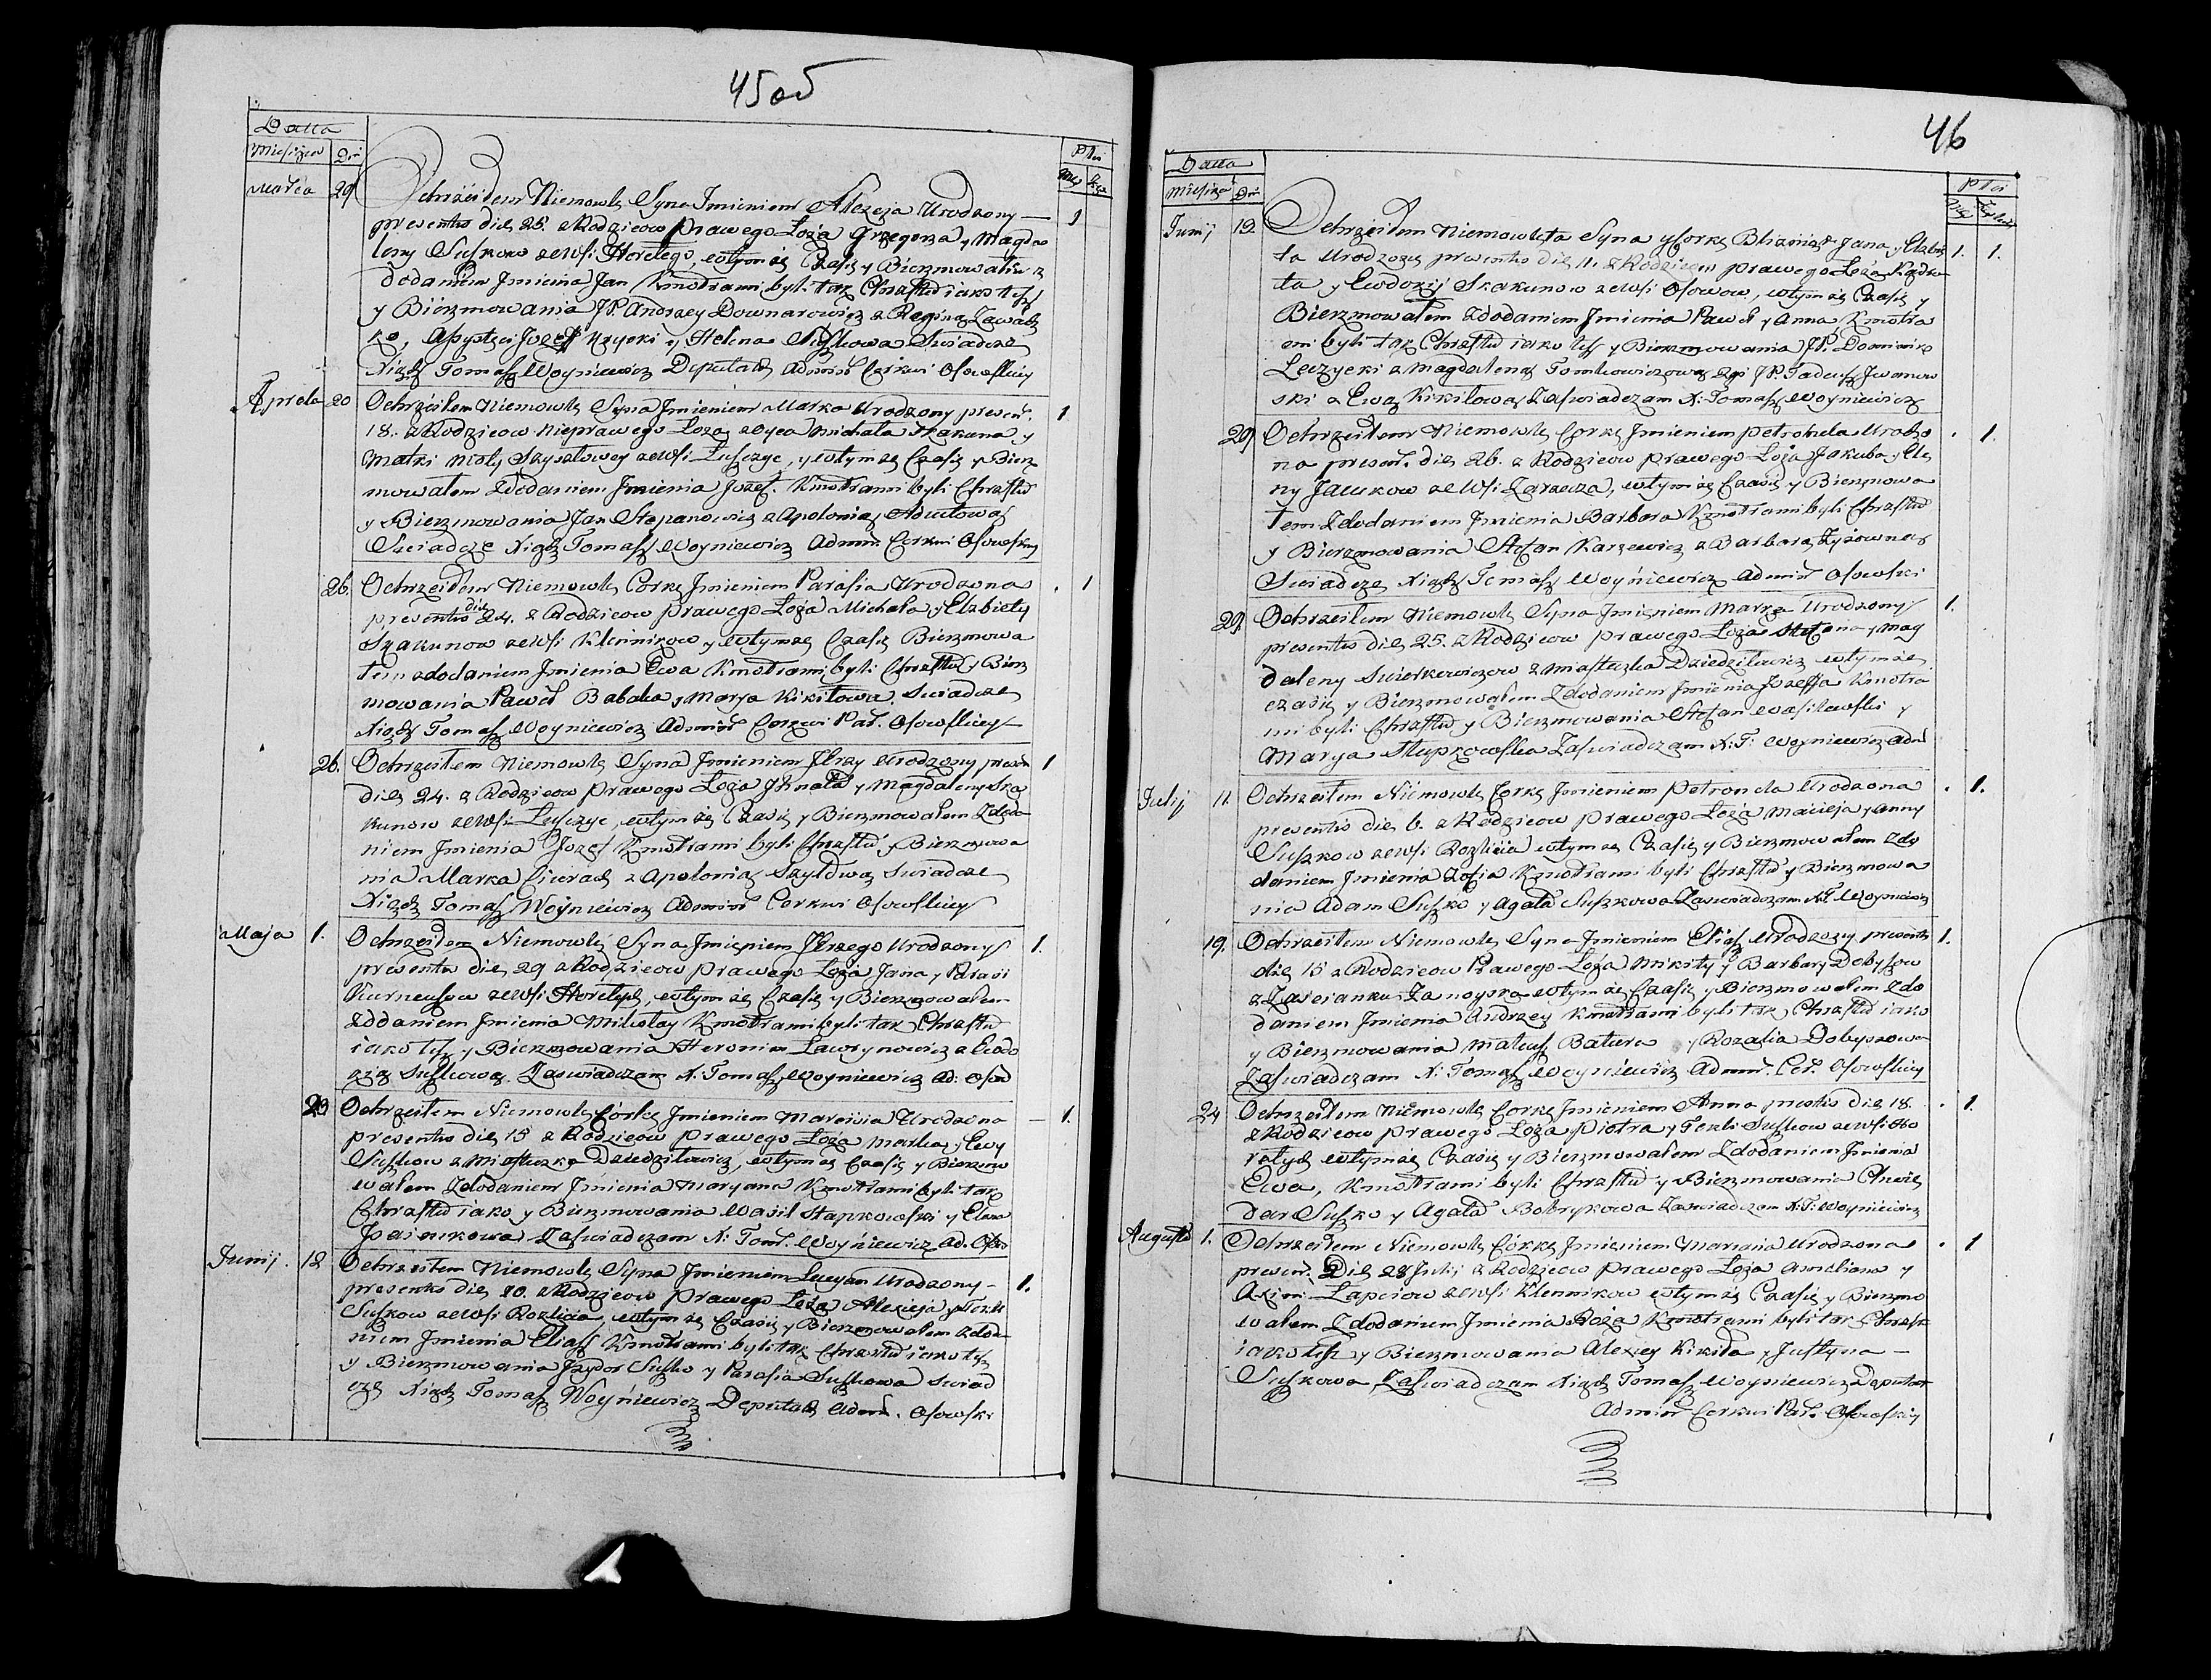 45об
Datta
Miesiąca Dni
Płci
Mez
Marca 29
Ochrzciłem Niemowle Syna Imieniem Alexeja Urodzony 1
presentis die 25. z Rodzicow prawego Łoża Grzegorza y Magda
leny Suszkow ze Wsi Horełego, w tymże Czasie y Bierzmowałem z
dodaniem Imienia Jan Kmotrami byli tak Chrzstu iako tesz
y Bierzmowania JP. Andrzey Downarowicz z Reginą Zawadz
ką, Asystęci Jozeff y Helena Suszkowa Swiadcze
Xiądz Tomasz Woyniewicz Deputat Admin Cerkwi Osowskiey
Aprela 20
Ochrzciłem Niemowle Syna Imieniem Marka Urodzony presen. 1
18. z Rodzicow Nieprawego Łoża z oyca Michała Skakuna y
Matki Szysztowey ze Wsi Łuszczyc, y w tymże Czasie y Bierz
mowałem z dodaniem Imienia Jozef. Kmotrami byli Chrzstu
y Bierzmowania Jan Stepanowicz z Apolonią
Swiadcze Xiądz Tomasz Woyniewicz Admin Cerkwi Osowskiey
26.
Ochrzciłem Niemowle Corkę Imieniem Parasia Urodzona . 1
presentis die 24. z Rodzicow prawego Łoża Michała y Elzbiety
Skakunow ze Wsi Klennikow y w tymże Czasie Bierzmowa
łem z dodaniem Imienia Ewa Kmotrami byli Chrzstu y Bierz
mowania Paweł Babaka y Marya Kikiłowa Swiadcze
Xiądz Tomasz Woyniewicz Admin Cerkwi Par. Osowskiey
26.
Ochrzciłem Niemowle Syna Imieniem Jerzy Urodzony presen 1
die 24. z Rodzicow prawego Łoża Jhnata y Magdaleny Ska
kunow ze Wsi Łuszczyc, w tymże Czasie y Bierzmowałem z doda
niem Imienia Jozef Kmotrami byli Chrzstu y Bierzmowa
nia Marka z Apolonią Swiadcze
Xiądz Tomasz Woyniewicz Admin Cerkwi Osowskiey
Maja 1.
Ochrzciłem Niemowle Syna Imieniem Jerzego Urodzony 1.
presentis die 29 z Rodzicow prawego Łoża Jana y Parasi
ze Wsi Horełych, w tymże Czasie y Bierzmowałem
z dodaniem Imienia Mikołay Kmotrami byli tak Chrzstu
iako tesz y Bierzmowania Heronim Ławrynowicz z Ewdo
Suszkową. Zaswiadczam X. Tomasz Woyniewicz Ad: Osow
29
Ochrzciłem Niemowle Córkę Imieniem Urodzona 1.
presentis die 15 z Rodzicow prawego Łoża Marka y Ewy
Suszkow z Miasteczka Dziedziłowicz, w tymże Czasie y Bierzmo
wałem z dodaniem Imienia Maryana Kmotrami byli tak
Chrzstu iako y Bierzmowania Wasil Stapkowski y Elena
Zaswiadczam X. Tom. Woyniewicz Ad. Osow
Junij. 12
Ochrzciłem Niemowle Syna Imieniem Lucyan Urodzony 1.
presentis die 10. z Rodzicow prawego Łoża Alexieja y Tekli
Suszkow ze Wsi Rozlicia, w tymże Czasie y Bierzmowałem z doda
niem Imienia Eliasz Kmotrami byli tak Chrzstu iako tesz
y Bierzmowania Jzydor Suszko y Parasia Suszkowa Swiad
czę Xiądz Tomasz Woyniewicz Deputat Adm. Osowski
46
Datta
Miesiąca Dni
Płci
Junij 12.
Ochrzciłem Niemowlęta Syna y Corkę Blizniąt Jana y Elzbie 1. 1.
ta Urodzone presentis die 11. z Rodzicow prawego Łoża Kądra
ta y Ewdokij Skakunow ze Wsi Osowow, w tymże Czasie y
Bierzmowałem z dodaniem Imienia Paweł y Anna Kmotra
mi byli tak Chrzstu iako tesz y Bierzmowania JP. Dominik
Leczycki z Magdaleną Tomkowiczową JP. Tadeusz Jwanow
ski z Ewą Kikiłową Zaswiadczam X. Tomasz Woyniewicz
29
Ochrzciłem Niemowle Corkę Imieniem Petronela Urodzo . 1.
na presen. die 26. z Rodzicow prawego Łoża Jakuba y Ele
ny ze Wsi Zarzecza, w tymże Czasie y Bierzmowa
łem z dodaniem Imienia Barbara Kmotrami byli Chrzstu
y Bierzmowania Stefan Karzewicz z Barbarą
Swiadczę Xiądz Tomasz Woyniewicz Admin Osowski
29.
Ochrzciłem Niemowle Syna Imieniem Marka Urodzony 1.
presentis die 25. z Rodzicow prawego Łoża Stefana y Mag
daleny z Miasteczka Dziedziłowicz w tymże
czasie y Bierzmowałem z dodaniem Imienia Kmotra
mi byli Chrzstu y Bierzmowania Stefan Wasilewski y
Marya Stupkowska Zaswiadczam X. T. Woyniewicz Adm
Julij 11.
Ochrzciłem Niemowle Corkę Imieniem Petronela Urodzona . 1.
presentis die 6. z Rodzicow prawego Łoża Macieja y Anny
Suszkow ze Wsi Rozlicia w tymże Czasie y Bierzmowałem z do
daniem Imienia Zofia Kmotrami byli Chrzstu y Bierzmowa
nia Adam Suszko y Agata Suszkowa Zaswiadczam X. T. Woyniewicz
19.
Ochrzciłem Niemowle Syna Imieniem Eliasz Urodzony presentis 1.
die 15 z Rodzicow Prawego Łoża Mikity y Barbary Dobyszow
z Zascianku w tymże Czasie y Bierzmowałem z do
daniem Imienia Andrzey Kmotrami byli tak Chrzstu iako
y Bierzmowania Mateusz Batura y Rozalia
Zaswiadczam X. Tomasz Woyniewicz Admin. Cer. Osowskiey
24
Ochrzciłem Niemowle Corkę Imieniem Anna prentis die 18. . 1.
z Rodzicow prawego Łoża Piotra y Tekli Suszkow ze Wsi Ho
rełych w tymże Czasie y Bierzmowałem z dodaniem Imienia
Ewa, Kmotrami byli Chrzstu y Bierzmowania
Suszko y Agata Bobrykowa Zaswiadczam X. T. Woyniewicz
Augusta 1.
Ochrzciłem Niemowle Córkę Imieniem Mariana Urodzona . 1
presen. Die 28 Julij z Rodzicow prawego Łoża Ameliana y
Łapciow ze Wsi Klennikow w tymże Czasie y Bierzmo
wałem z dodaniem Imienia Roża Kmotrami byli tak Chrzst
iako tesz y Bierzmowania Alexiey Kikiła y Justyna
Suszkowa Zaswiadczam Xiądz Tomasz Woyniewicz Deputat
Admin Cerkwi Par. Osowskiey